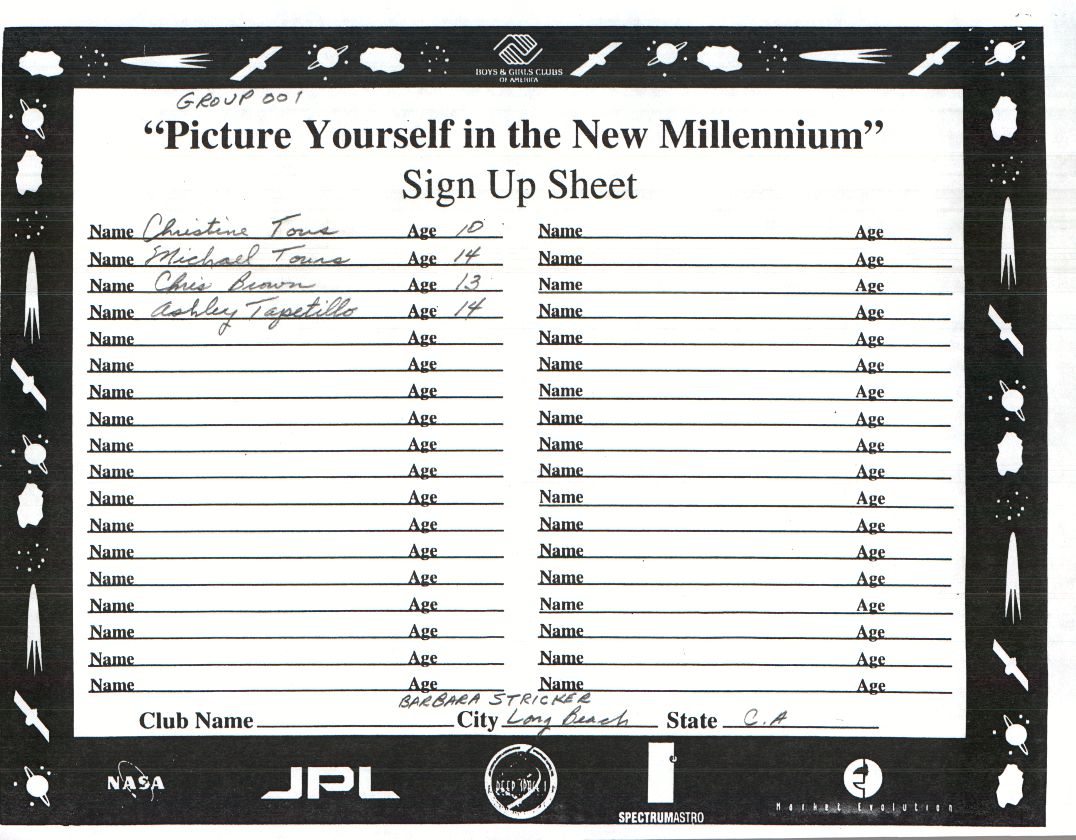 BOYS & GIRLS CLUBS
OF AMERICA
GROUP 001
“Picture Yourself in the New Millennium”
Sign Up Sheet
Name Christine Tours Age 10 Name Age
Name Michael Tours Age 14 Name Age
Name Chris Brown Age 13 Name Age
Name Ashley Tapetillo Age 14 Name Age
Name Age Name Age
Name Age Name Age
Name Age Name Age
Name Age Name Age
Name Age Name Age
Name Age Name Age
Name Age Name Age
Name Age Name Age
Name Age Name Age
Name Age Name Age
Name Age Name Age
Name Age Name Age
Name Age Name Age
Name Age Name Age
BARBARA STRICKER
Club Name City Long Beach State C.A
NASA JPL DEEP SPACE 1 SPECTRUMASTRO Market Evolution